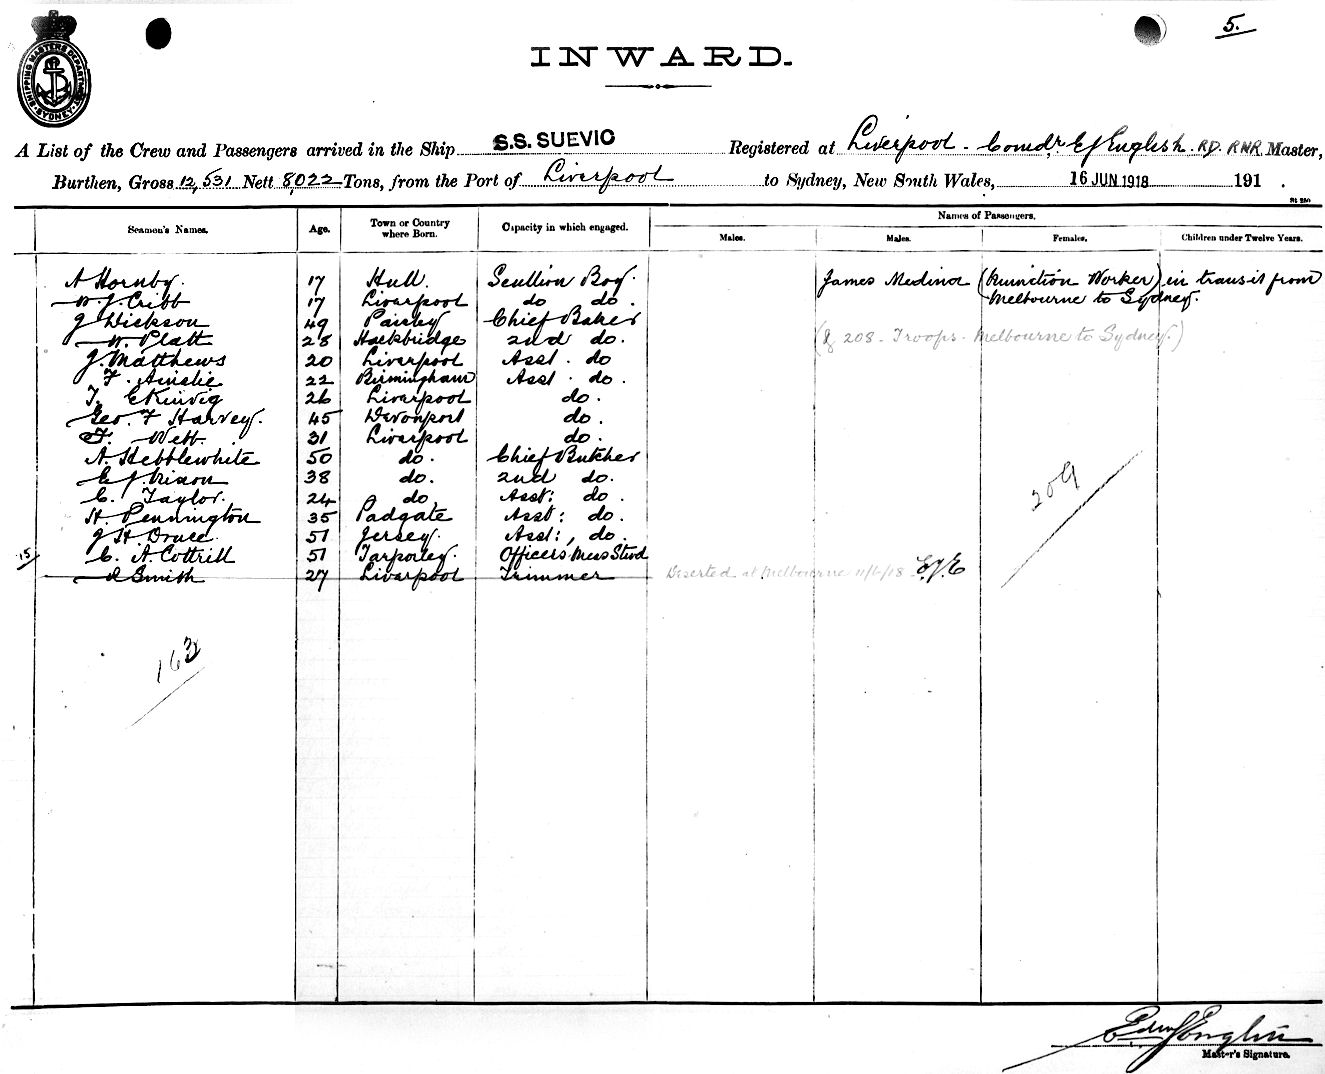 5.
SHIPPING MASTERS DEPARTMENT SYDNEY
INWARD.
A List of the Crew and Passengers arrived in the Ship S.S. SUEVIC Registered at Liverpool. Comdr. E J English. RD. RNR Master,
Burthen, Gross 12,531 Nett 8,022 Tons, from the Port of Liverpool to Sydney, New South Wales, 16 JUN 1918 191 .
Seamen's Names. Age. Town or Country where Born. Capacity in which engaged. Names of Passengers.
Males. Males. Females. Children under Twelve Years.
A Hornby. 17 Hull. Scullion Boy. James Medina (Munition Worker) in transit from
W J Cribb 17 Liverpool do do. Melbourne to Sydney.
J Dickson 49 Paisley Chief Baker
W. Platt 28 Hackbridge 2nd do. (& 208. Troops. Melbourne to Sydney.)
J. Matthews 20 Liverpool Asst. do
F. Ainslie 22 Birmingham Asst. do.
T. Skinvig 26 Liverpool do.
Geo. F Harvey. 45 Devonport do.
F. Webb. 31 Liverpool do.
A. Hebblewhite 50 do. Chief Butcher
E J. Nixon 38 do. 2nd do.
C. Taylor. 24 do. Asst: do.
H. Pennington 35 Padgate Asst: do.
J H. Druce. 51 Jersey. Asst:, do.
15 C. A. Cottrill 51 Tarporley. Officers Mess Stwd
Smith 27 Liverpool Trimmer Deserted at Melbourne 11/6/18 EJE
209
163
Edw J English
Master's Signature.